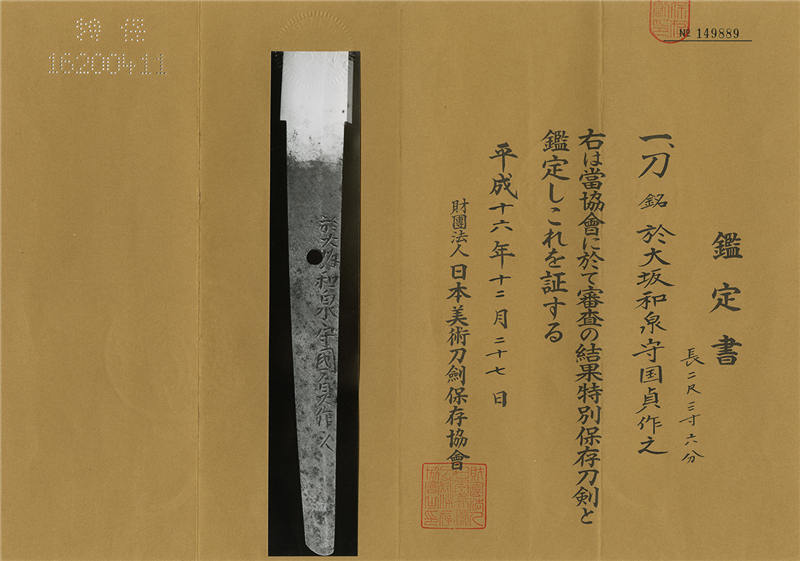 № 149889
鑑定書
一、刀 銘 於大坂和泉守国貞作之
長二尺三寸六分
右は當協會に於て審査の結果特別保存刀剣と
鑑定しこれを証する
平成十六年十二月二十七日
財團法人 日本美術刀劍保存協會
特保
16200411
於大坂和泉守國貞作之